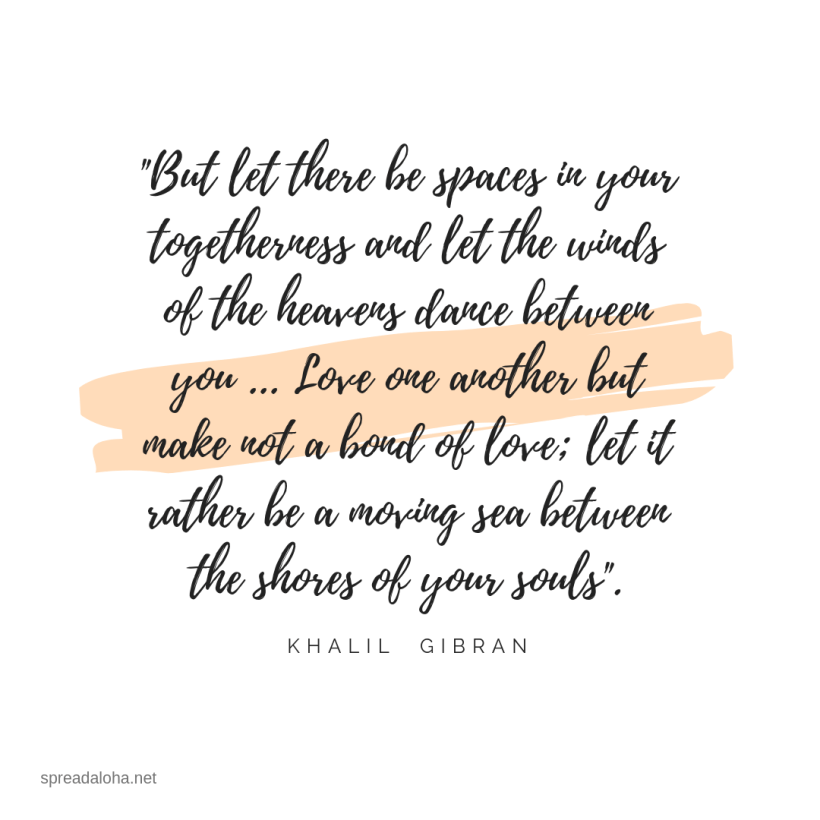 "But let there be spaces in your
togetherness and let the winds
of the heavens dance between
you ... Love one another but
make not a bond of love; let it
rather be a moving sea between
the shores of your souls".
KHALIL GIBRAN
spreadaloha.net